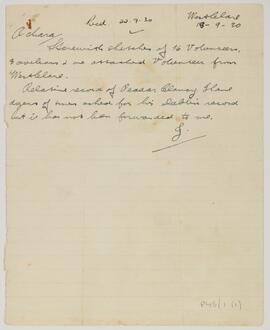 Recd 22.9.20
West Clare
18-9-20
A chara,
Herewith sketches of 16 Volunteers,
& civilians & one attached Volunteer from
West Clare.
Relative record of Peadar Clancy I have
of times asked for his Dublin record
but it has not been forwarded to me.
P45/1 (1)